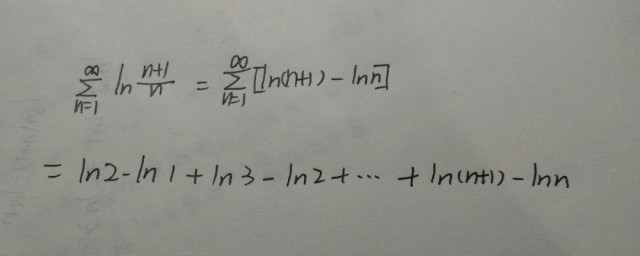 ∑_{n=1}^{∞} ln (n+1)/n = ∑_{n=1}^{∞} [ln(n+1) - ln n]
= ln2 - ln1 + ln3 - ln2 + ⋯ + ln(n+1) - ln n